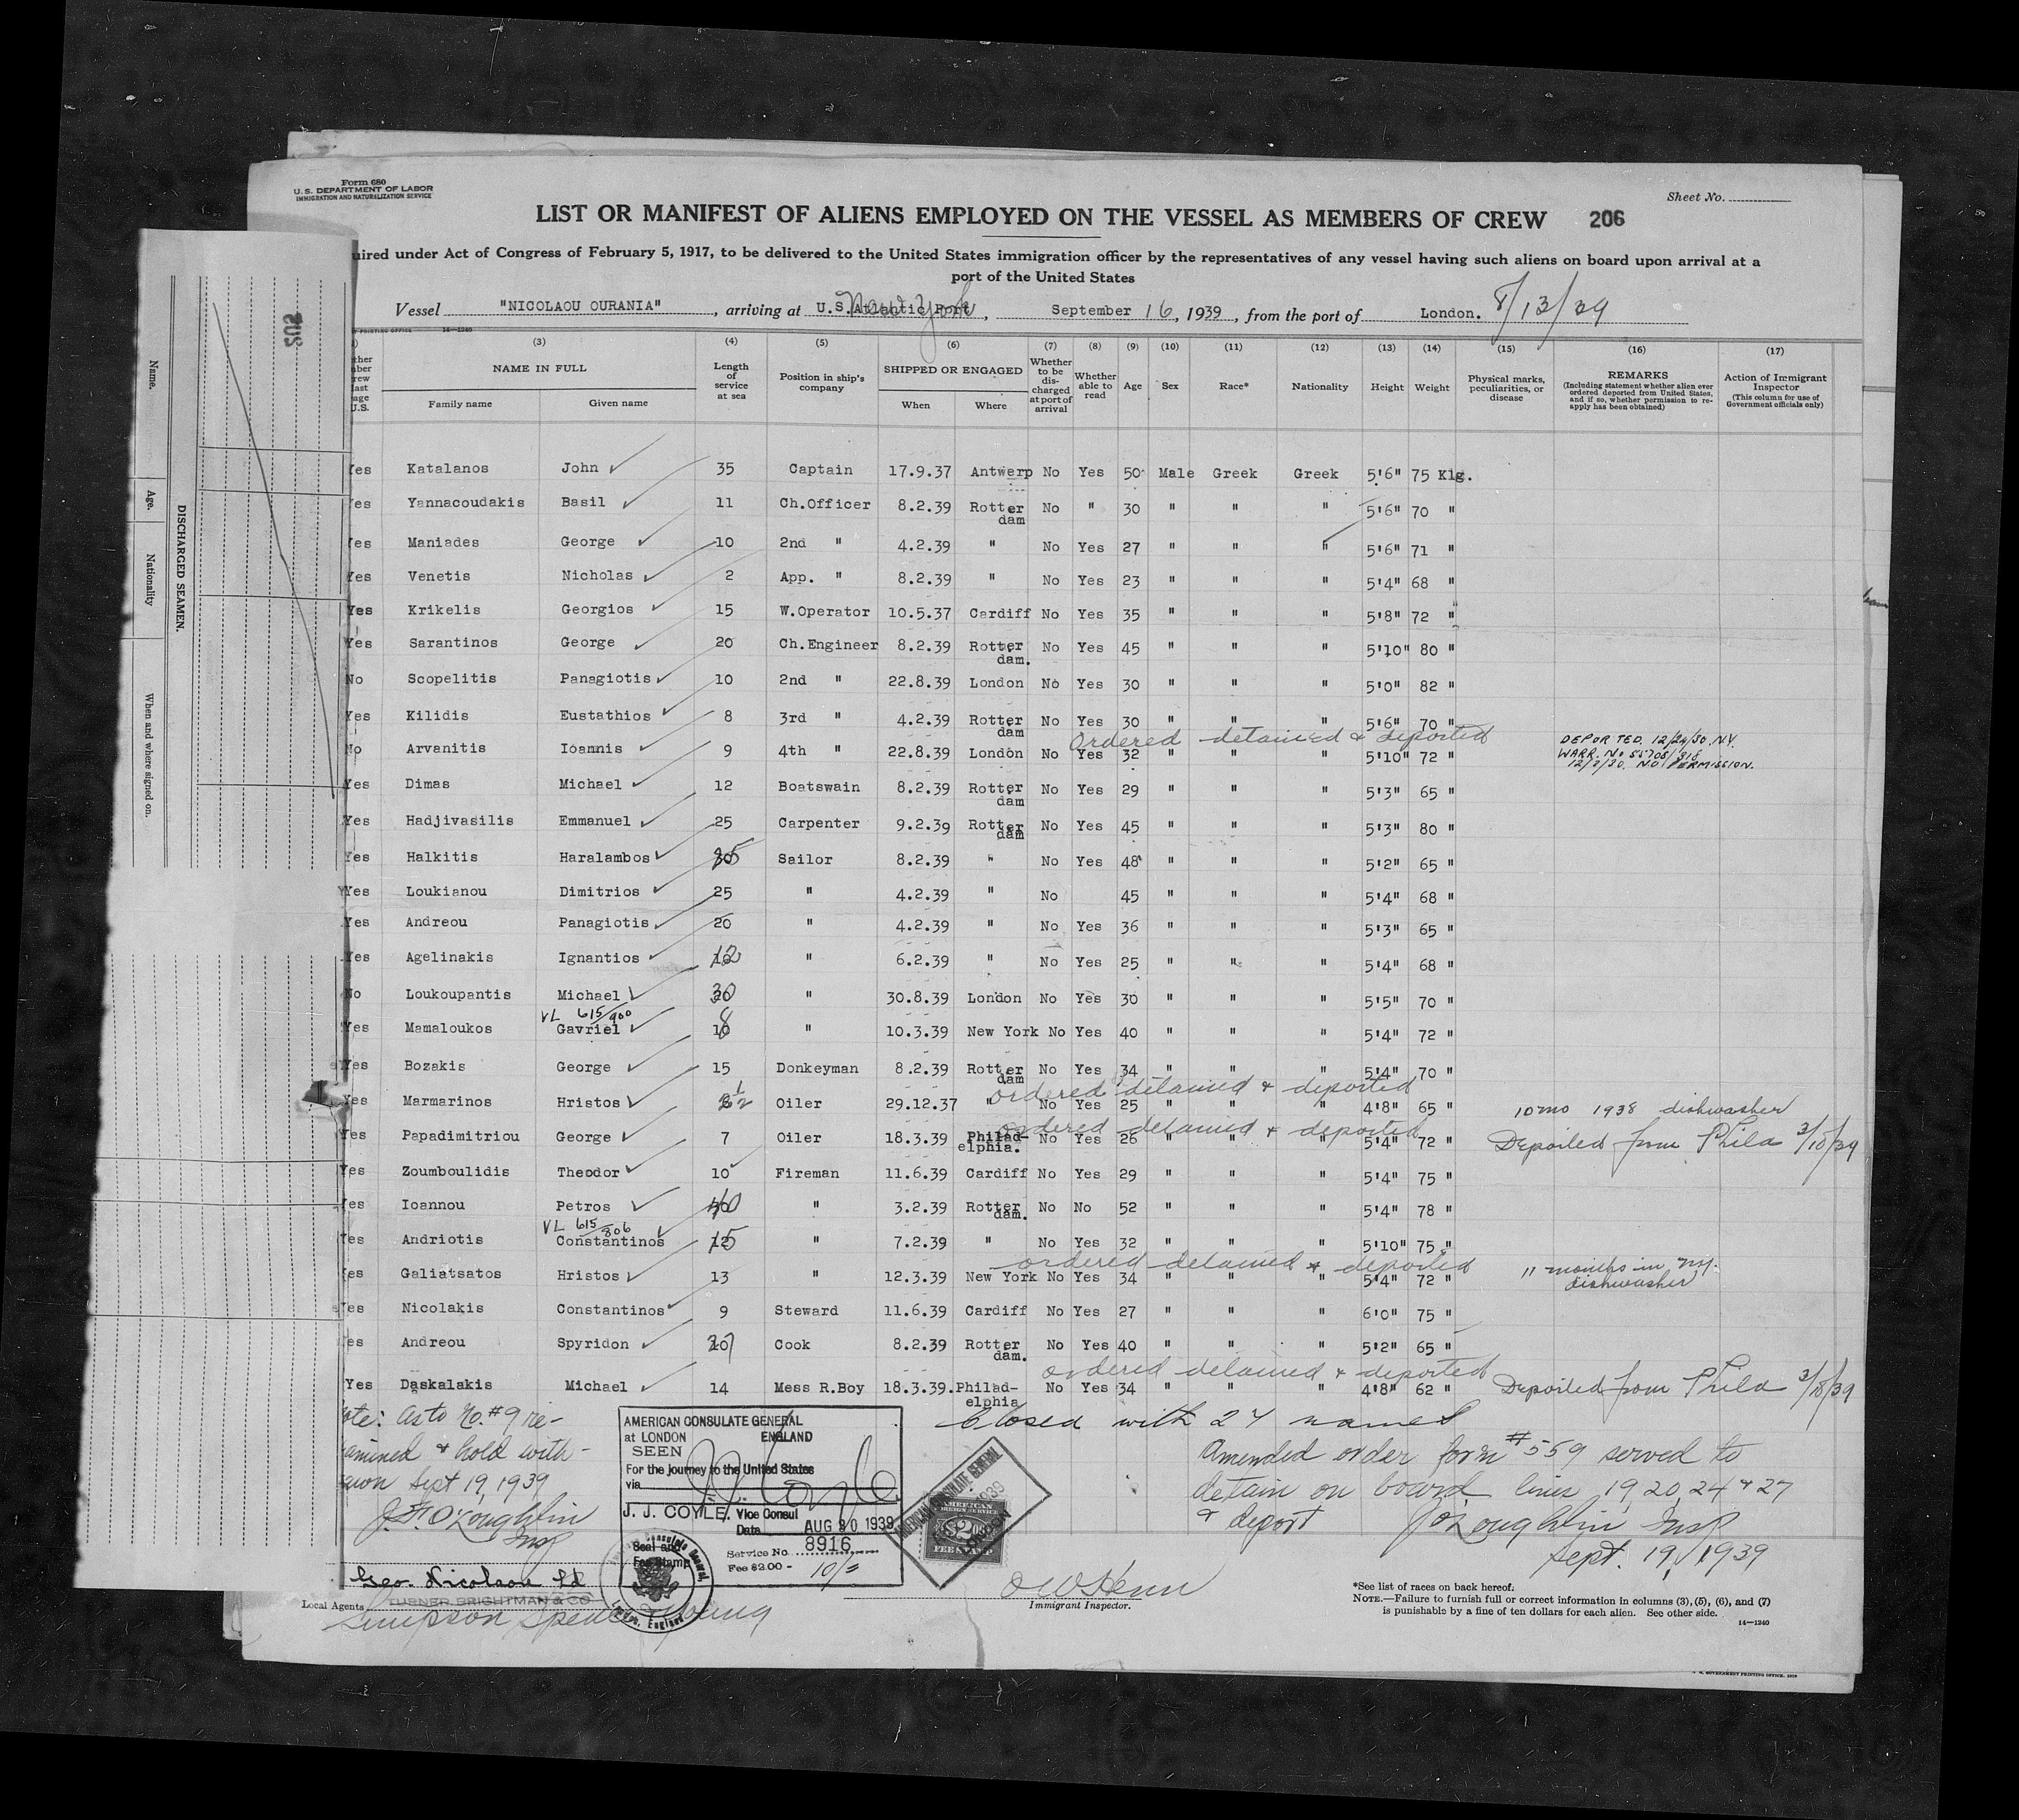 Form 680
U. S. DEPARTMENT OF LABOR
IMMIGRATION AND NATURALIZATION SERVICE
Sheet No.
LIST OR MANIFEST OF ALIENS EMPLOYED ON THE VESSEL AS MEMBERS OF CREW 206
uired under Act of Congress of February 5, 1917, to be delivered to the United States immigration officer by the representatives of any vessel having such aliens on board upon arrival at a
port of the United States
Vessel "NICOLAOU OURANIA" , arriving at U.S. Atlantic Port New York , September 16, 1939 , from the port of London. 8/13/39
(3) (4) (5) (6) (7) (8) (9) (10) (11) (12) (13) (14) (15) (16) (17)
NAME IN FULL Family name Given name Length of service at sea Position in ship's company SHIPPED OR ENGAGED When Where Whether to be discharged at port of arrival Whether able to read Age Sex Race* Nationality Height Weight Physical marks, peculiarities, or disease REMARKS (Including statement whether alien ever ordered deported from United States, and if so, whether permission to re-apply has been obtained) Action of Immigrant Inspector (This column for use of Government officials only)
Yes Katalanos John 35 Captain 17.9.37 Antwerp No Yes 50 Male Greek Greek 5'6" 75 Klg.
Yes Yannacoudakis Basil 11 Ch.Officer 8.2.39 Rotterdam No " 30 " " " 5'6" 70 "
Yes Maniades George 10 2nd " 4.2.39 " No Yes 27 " " " 5'6" 71 "
Yes Venetis Nicholas 2 App. " 8.2.39 " No Yes 23 " " " 5'4" 68 "
Yes Krikelis Georgios 15 W.Operator 10.5.37 Cardiff No Yes 35 " " " 5'8" 72 "
Yes Sarantinos George 20 Ch.Engineer 8.2.39 Rotterdam. No Yes 45 " " " 5'10" 80 "
No Scopelitis Panagiotis 10 2nd " 22.8.39 London No Yes 30 " " " 5'0" 82 "
Yes Kilidis Eustathios 8 3rd " 4.2.39 Rotterdam No Yes 30 " " " 5'6" 70 "
Ordered detained & deported
No Arvanitis Ioannis 9 4th " 22.8.39 London No Yes 32 " " " 5'10" 72 " DEPORTED. 12/24/30 N.Y. WARR. No 55708/916 12/2/30. NO PERMISSION.
Yes Dimas Michael 12 Boatswain 8.2.39 Rotterdam No Yes 29 " " " 5'3" 65 "
Yes Hadjivasilis Emmanuel 25 Carpenter 9.2.39 Rotterdam No Yes 45 " " " 5'3" 80 "
Yes Halkitis Haralambos Sailor 8.2.39 " No Yes 48 " " " 5'2" 65 "
Yes Loukianou Dimitrios 25 " 4.2.39 " No 45 " " " 5'4" 68 "
Yes Andreou Panagiotis 20 " 4.2.39 " No Yes 36 " " " 5'3" 65 "
Yes Agelinakis Ignantios 12 " 6.2.39 " No Yes 25 " " " 5'4" 68 "
No Loukoupantis Michael 30 " 30.8.39 London No Yes 30 " " " 5'5" 70 "
VL 615/900
Yes Mamaloukos Gavriel 8 " 10.3.39 New York No Yes 40 " " " 5'4" 72 "
Yes Bozakis George 15 Donkeyman 8.2.39 Rotterdam No Yes 34 " " " 5'4" 70 "
ordered detained & deported
Yes Marmarinos Hristos Oiler 29.12.37 " No Yes 25 " " " 4'8" 65 " 10 mo 1938 dishwasher
ordered detained & deported
Yes Papadimitriou George 7 Oiler 18.3.39 Philadelphia. No Yes 26 " " " 5'4" 72 " Deported from Phila 3/18/39
Yes Zoumboulidis Theodor 10 Fireman 11.6.39 Cardiff No Yes 29 " " " 5'4" 75 "
Yes Ioannou Petros 40 " 3.2.39 Rotterdam. No No 52 " " " 5'4" 78 "
VL 615/806
Yes Andriotis Constantinos 15 " 7.2.39 " No Yes 32 " " " 5'10" 75 "
ordered detained & deported
Yes Galiatsatos Hristos 13 " 12.3.39 New York No Yes 34 " " " 5'4" 72 " 11 months in N.Y. dishwasher
Yes Nicolakis Constantinos 9 Steward 11.6.39 Cardiff No Yes 27 " " " 6'0" 75 "
Yes Andreou Spyridon Cook 8.2.39 Rotterdam. No Yes 40 " " " 5'2" 65 "
ordered detained & deported
Yes Daskalakis Michael 14 Mess R.Boy 18.3.39. Philadelphia No Yes 34 " " " 4'8" 62 " Deported from Phila 3/18/39
Closed with 27 names
ote: As to No. #9 re-
amined & hold with-
Sept 19, 1939
J. F. O'Loughlin
Insp
AMERICAN CONSULATE GENERAL
at LONDON ENGLAND
SEEN
For the journey to the United States
via
J. J. COYLE, Vice Consul
Date AUG 30 1939
Seal and
Fee Stamp
Service No. 8916
Fee $2.00 - 10/=
AMERICAN CONSULATE GENERAL
LONDON
AMERICAN
FOREIGN SERVICE
$2.00
FEE STAMP
Amended order form #559 served to
detain on board lines 19, 20, 24 & 27
& deport J O'Loughlin Insp
Sept. 19, 1939
Geo. Nicolaou Ld
Local Agents TURNER, BRIGHTMAN & CO
Simpson Spence & Young
Immigrant Inspector.
*See list of races on back hereof.
NOTE.—Failure to furnish full or correct information in columns (3), (5), (6), and (7)
is punishable by a fine of ten dollars for each alien. See other side.
14—1240
DISCHARGED SEAMEN.
Name.
Age.
Nationality
When and where signed on.
205